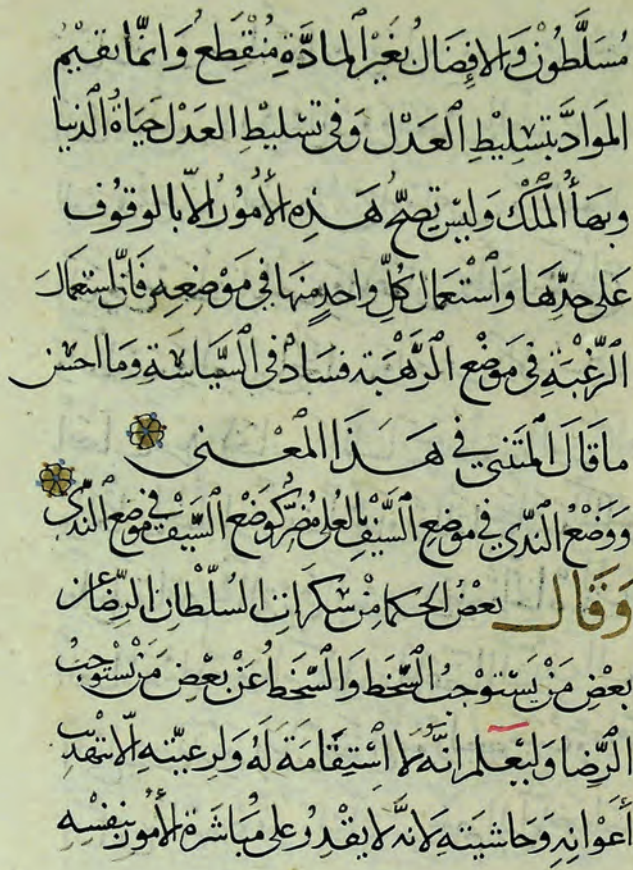 مُسَلَّطُوْنَ وَالافِضَالُ بغَيْرِ المادَّةِ مُنْقَطِع وَانمَّا تقيْمُ
المَوادَّ بتَسْلِيْطِ العَدْل وَفى تسْليْطِ العَدْلِ حَيَاةُ الدنيا
وبهَأُ المُلْك وَليْسَ تصحُّ هَذِهِ الأمُوْرُ الاّ بالوقوُف
عَلى حدِّهَا وَاسْتعْمَال كلِّ واحدٍ منهَا فى مَوْضِعِهِ فَانَّ اسْتعمَالَ
الرَّغْبَةِ فى مَوضْعِ الرَّهْبَة فسَادٌ فى السِّيَاسَةِ وَمَا احسَن
ماقَالَ المتَنَبي في هَذَا المَعْنى
وَوَضْعُ النَّدَى في موضِعِ السَّيْفِ بالعُلى مُضِرٌّ كوَضْع السَّيْفِ في مَوْضعِ النَّدى
وَقَالَ بعَضُ الحكما مِنْ سَكرَاتِ السُّلْطَانِ الرِّضَا عن
بعَضِ مَنْ يَسْتَوْجبُ السَّخَطَ وَالسَّخَط عَنْ بعَض مَنْ يسْتوجبُ
الرِّضَا وَليَعْلم انَّهُ لا اسْتِقَامَةَ لَهُ وَلرعيّتهِ الّا بتهذيب
أعَوْانِهِ وَحَاشيَتهِ لانَّهُ لا يقْدِرُ على مبَاشَرة الأمُوْر بنفسْه